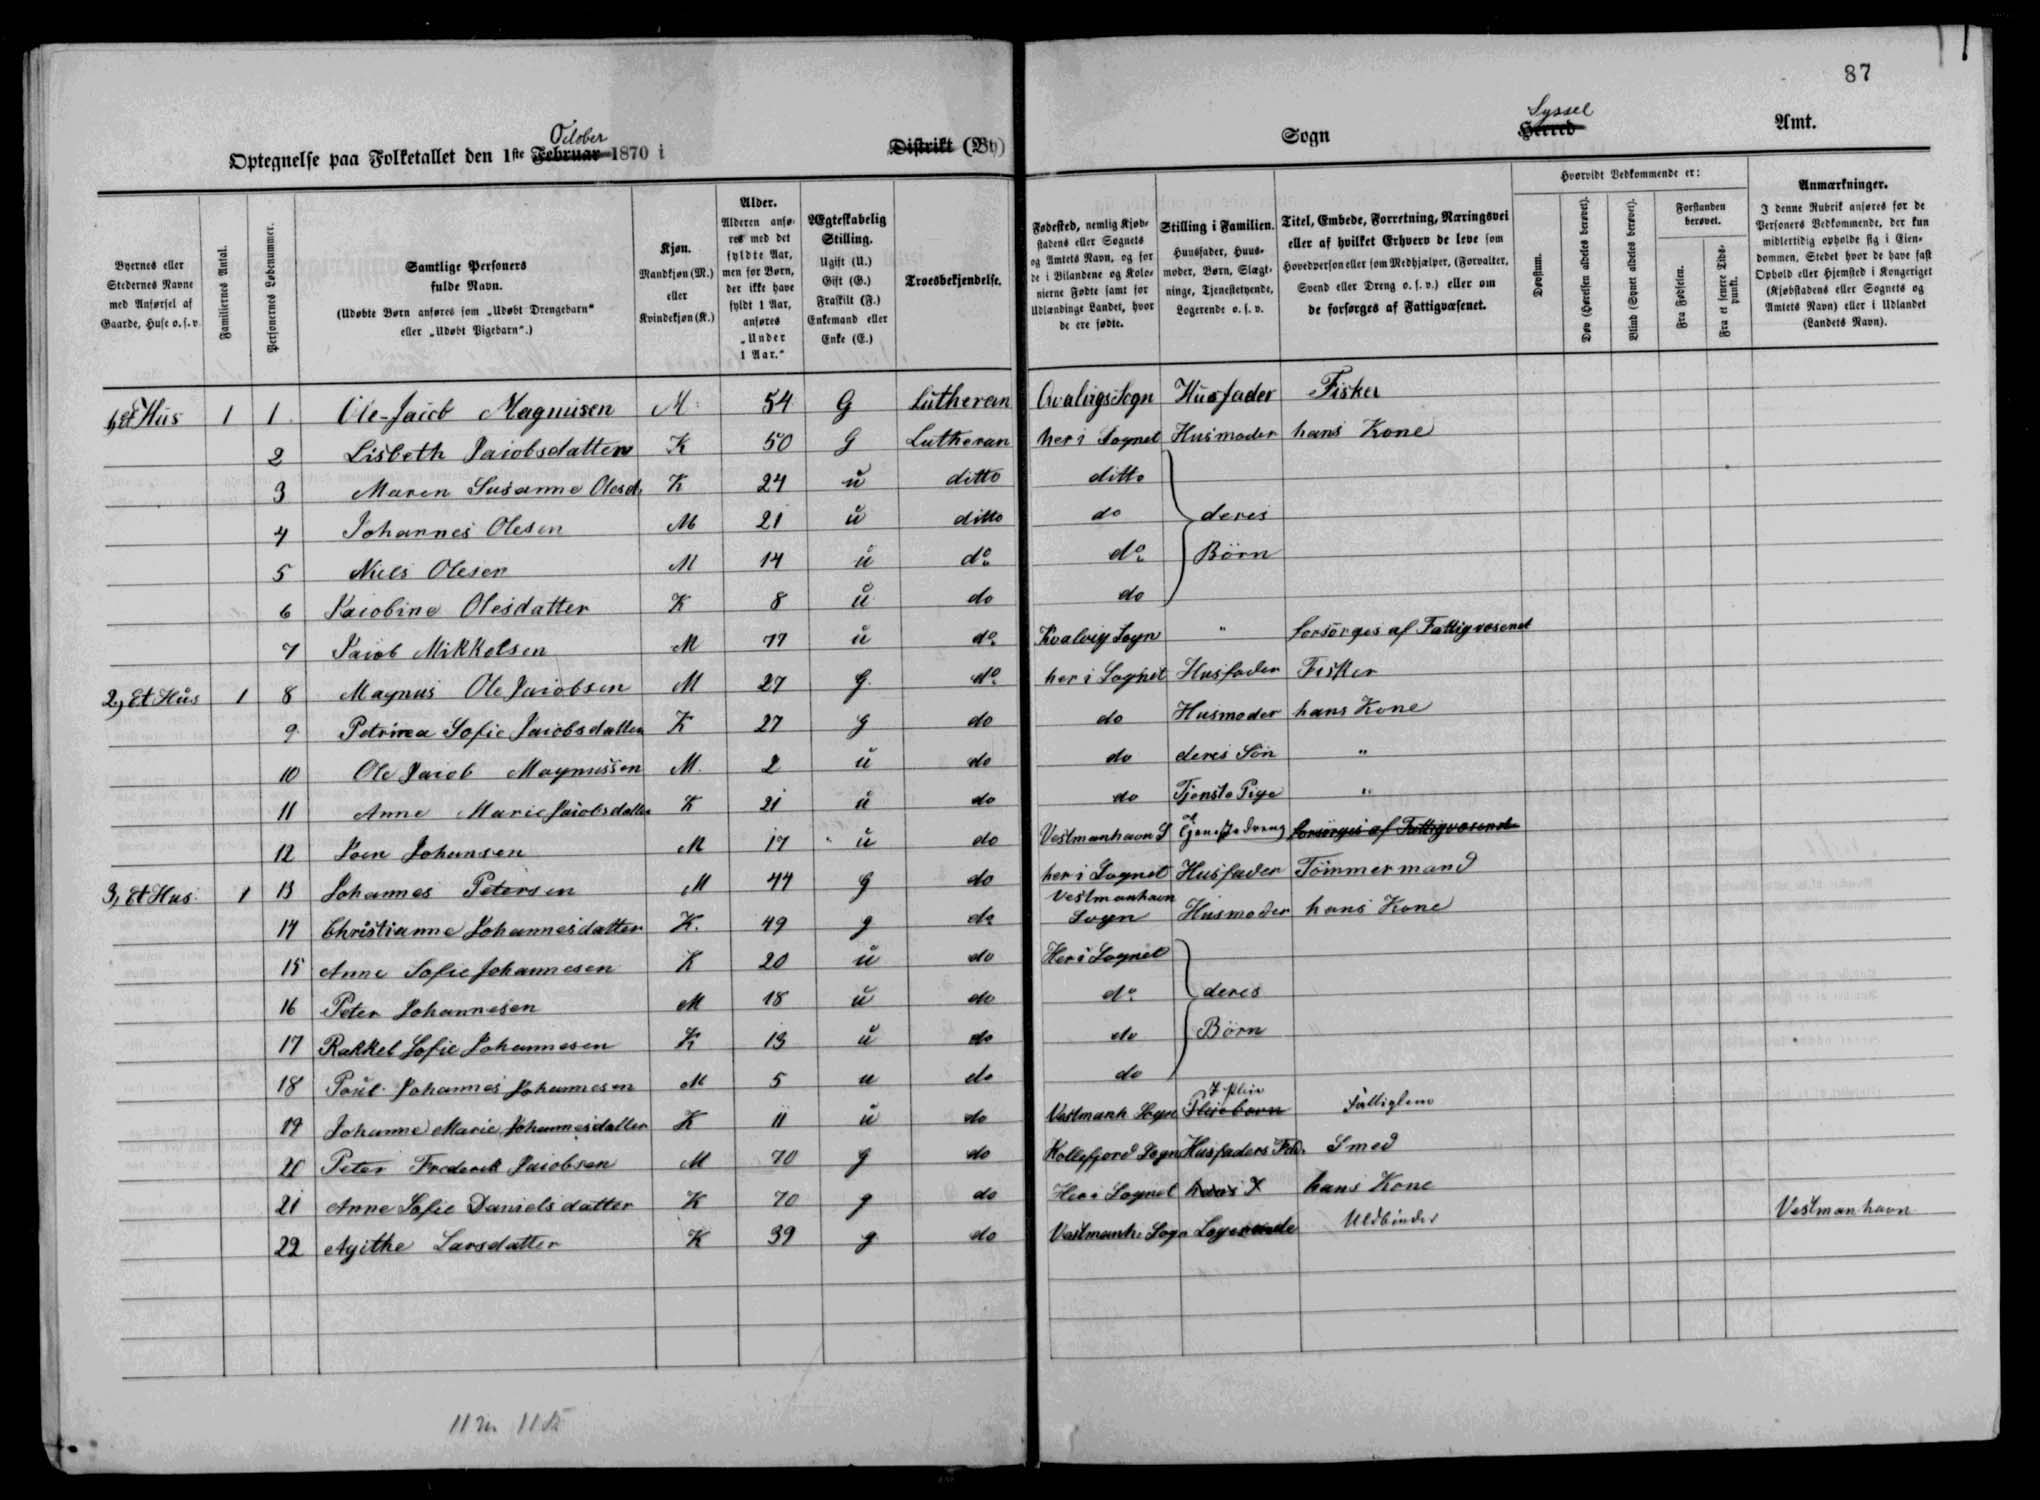 87
October
Syssel
Optegnelse paa Folketallet den 1ste Februar 1870 i Distrikt (By) Sogn Herred Amt.
Byernes eller Stedernes Navne med Anførsel af Gaarde, Huse o. s. v.
Familiernes Antal.
Personernes Løbenummer.
Samtlige Personers fulde Navn.
(Udøbte Børn anføres som „Udøbt Drengebarn“ eller „Udøbt Pigebarn“.)
Kjøn. Mandkjøn (M.) eller Kvindekjøn (K.)
Alder. Alderen anføres med det fyldte Aar, men for Børn, der ikke have fyldt 1 Aar, anføres „Under 1 Aar.“
Ægteskabelig Stilling. Ugift (U.) Gift (G.) Fraskilt (F.) Enkemand eller Enke (E.)
Troesbekjendelse.
Fødested, nemlig Kjøbstadens eller Sognets og Amtets Navn, og for de i Bilandene og Kolonierne Fødte samt for Udlændinge Landet, hvor de ere fødte.
Stilling i Familien. Huusfader, Huusmoder, Børn, Slægtninge, Tjenestetyende, Logerende o. s. v.
Titel, Embede, Forretning, Næringsvei eller af hvilket Erhverv de leve som Hovedperson eller som Medhjælper, (Forvalter, Svend eller Dreng o. s. v.) eller om de forsørges af Fattigvæsenet.
Hvorvidt Vedkommende er:
Døvstum.
Døv (Hørelsen aldeles berøvet).
Blind (Synet aldeles berøvet).
Forstanden berøvet.
Fra Fødselen.
Fra et senere Tidspunkt.
Anmærkninger. I denne Rubrik anføres for de Personers Vedkommende, der kun midlertidig opholde sig i Eiendommen, Stedet hvor de have fast Ophold eller Hjemsted i Kongeriget (Kjøbstadens eller Sognets og Amtets Navn) eller i Udlandet (Landets Navn).
1, et Hus 1 1 Ole-Jacob Magnusen M 54 G Lutheran Qvalvigs Sogn Husfader Fisker
2 Lisbeth Jacobsdatter K 50 G Lutheran her i Sognet Husmoder hans Kone
3 Maren Susanne Olesd. K 24 u ditto ditto
4 Johannes Olesen M 21 u ditto do deres
5 Niels Olesen M 14 u do do Børn
6 Jacobine Olesdatter K 8 u do do
7 Jacob Mikkelsen M 77 u do Kvalvig Sogn " forsørges af Fattigvæsenet
2, Et Hus 1 8 Magnus Ole Jacobsen M 27 g. do her i Sognet Husfader Fisker
9 Petrina Sofie Jacobsdatter K 27 g do do Husmoder hans Kone
10 Ole Jacob Magnussen M. 2 u do do deres Søn "
11 Anne Marie Jacobsdatter K 21 u do do Tjeneste Pige "
12 Joen Johansen M 17 u do Vestmanhavn S Tjenestedreng forsørges af Fattigvæsenet
3, Et Hus 1 13 Johannes Petersen M 44 g do her i Sognet Husfader Tömmermand
14 Christianne Johannesdatter K. 49 g do Vestmanhavn Sogn Husmoder hans Kone
15 Anne Sofie Johannesen K 20 u do Her i Sognet
16 Peter Johannesen M 18 u do do deres
17 Rakkel Sofie Johannesen K 13 u do do Børn
18 Poul Johannes Johannesen M 5 u do do
19 Johanne Marie Johannesdatter K 11 u do Vestmanh Sogn Pleiebarn I Pleie Fattiglem
20 Peter Frederik Jacobsen M 70 g do Kollefjord Sogn Husfaders Smed
21 Anne Sofie Danielsdatter K 70 g do Her i Sognet hans Kone
22 Agithe Larsdatter K 39 g do Vestmanh. Sogn Logerende Uldbinder Vestmanhavn